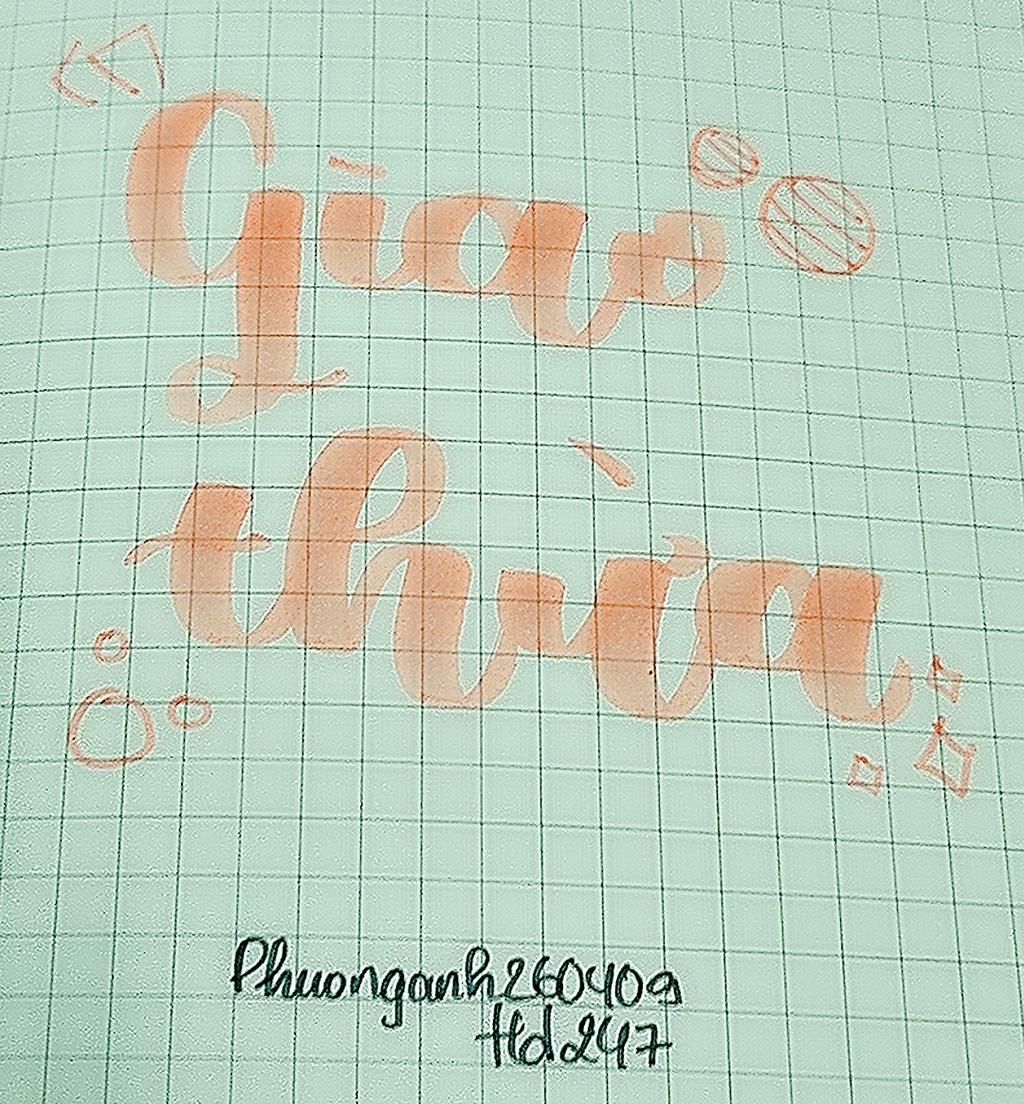 Giao
thừa
Phuonganh260409
Hd247